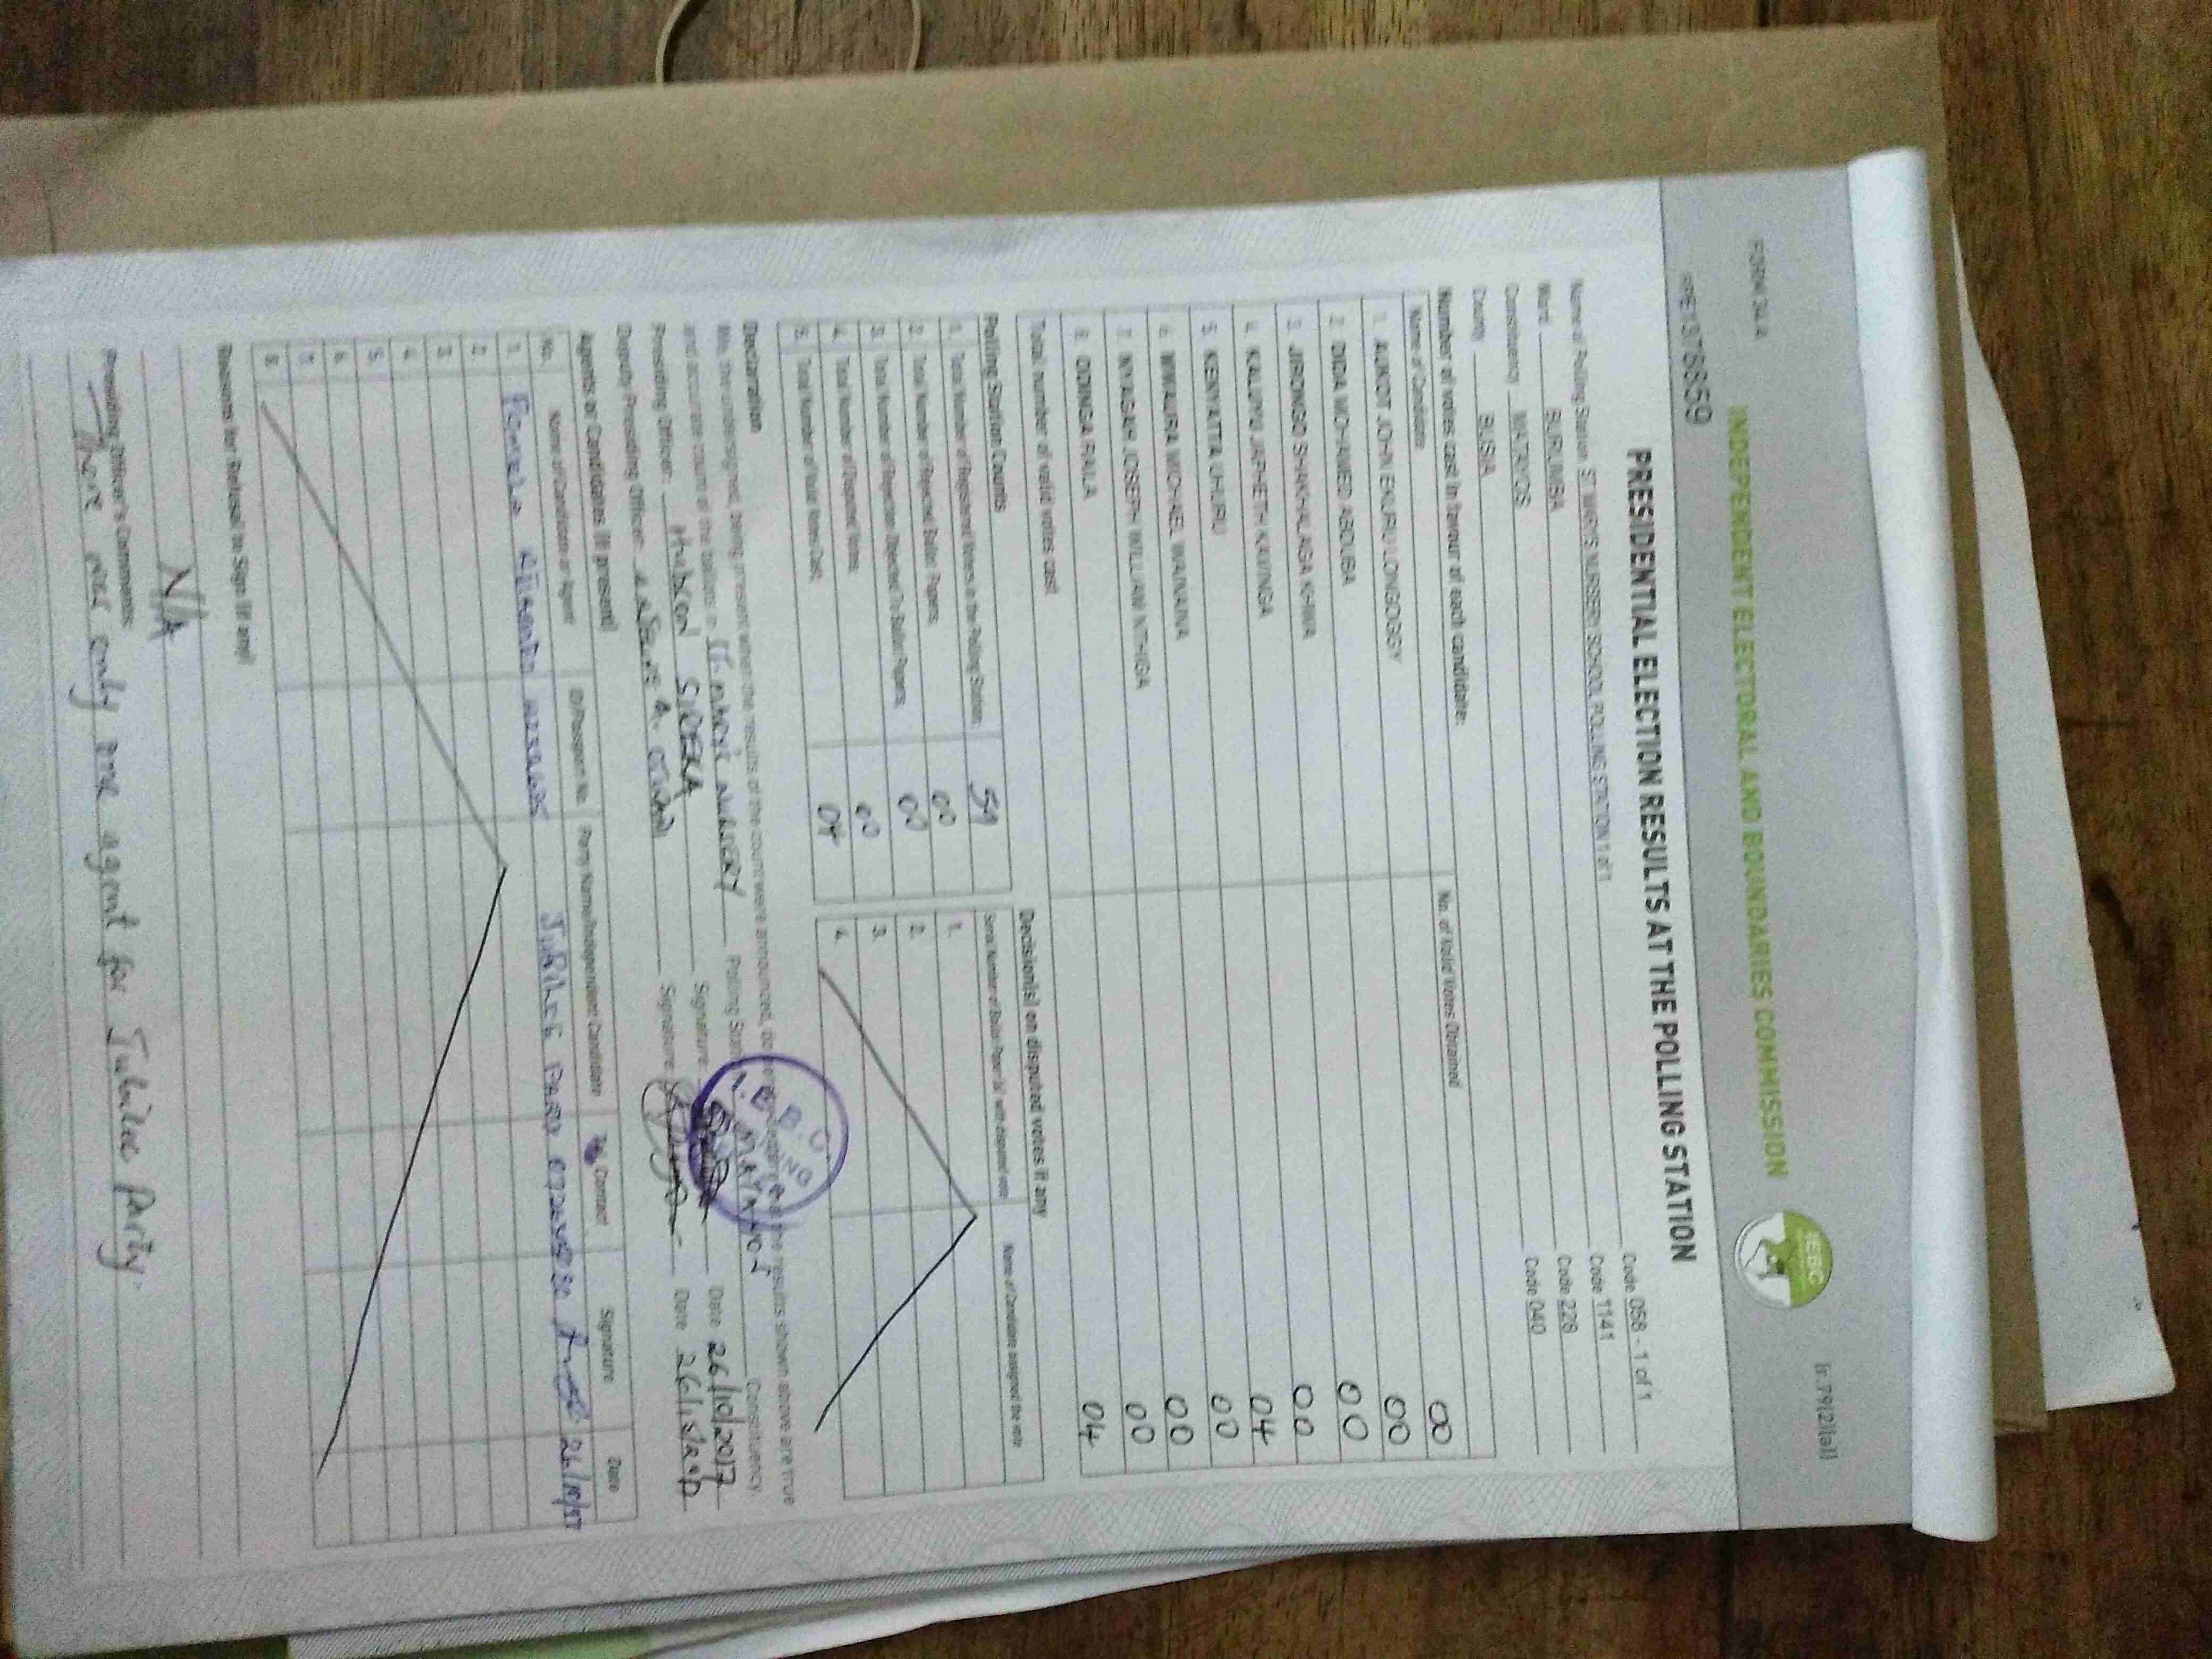 FORM 34 A
[r.79(2)(a)]
INDEPENDENT ELECTORAL AND BOUNDARIES COMMISSION
IEBC
PRESIDENTIAL ELECTION RESULTS AT THE POLLING STATION
Name of Polling Station ST MARYS NURSERY SCHOOL POLLING STATION 1 of 1 Code 058 - 1 of 1
Ward BURUMBA Code 1141
Constituency MATAYOS Code 228
County BUSIA Code 040
Number of votes cast in favour of each candidate:
Name of Candidate No. of Valid Votes Obtained
1. AUKOT JOHN EKURU LONGOGGY 00
2. DIDA MOHAMED ABDUBA 00
3. JIRONGO SHAKHALAGA KHWA 00
4. KALUYU JAPHETH KAVINGA 00
5. KENYATTA UHURU 04
6. MWAURA MICHAEL WAINAINA 00
7. NYAGAH JOSEPH WILLIAM NTHIGA 00
8. ODINGA RAILA 00
Total number of valid votes cast 04
Polling Station Counts
1. Total Number of Registered Voters in the Polling Station: 59
2. Total Number of Rejected Ballot Papers: 00
3. Total Number of Rejection Objected To Ballot Papers: 00
4. Total Number of Disputed Votes: 00
5. Total Number of Valid Votes Cast: 04
Decision(s) on disputed votes if any
Serial Number of Ballot Paper (s) with disputed vote Name of Candidate assigned the vote
1.
2.
3.
4.
Declaration
We, the undersigned, being present when the results of the count were announced, do hereby declare that the results shown above are true
and accurate count of the ballots in ST. MARY'S NURSERY Polling Station MATAYOS Constituency.
Presiding Officer: HUDSON SIDEKA Signature: Date 26/10/2017
Deputy Presiding Officer: Signature: Date
Agents or Candidates (if present)
No. Name of Candidate or Agent ID/Passport No. Party Name/Independent Candidate Tel. Contact Signature Date
1. JUBILEE PARTY 26/10/17
2.
3.
4.
5.
6.
7.
8.
Reasons for Refusal to Sign (if any)
N/A
Presiding Officer's Comments:
There was only one agent for Jubilee Party.